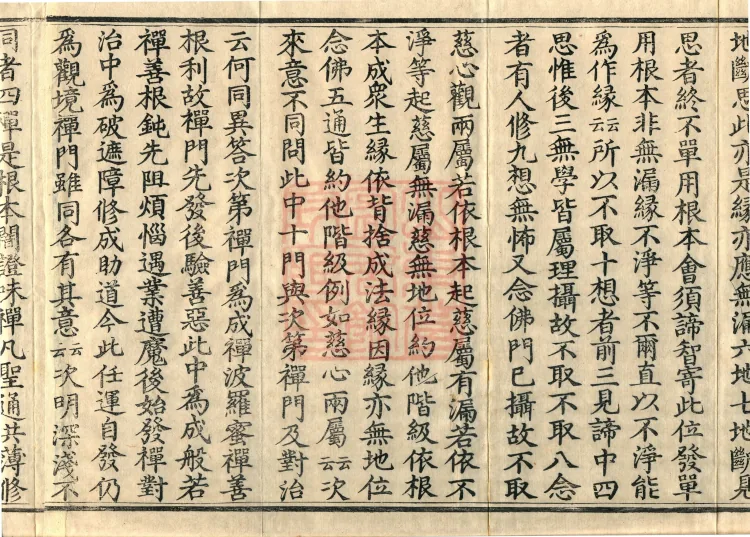 地斷思此亦是緣亦應無漏六地七地斷見
思者終不單用根本會須諦智寄此位發單
用根本非無漏緣不淨等不爾直以不淨能
為作緣云云所以不取十想者前三見諦中四
思惟後三無學皆屬理攝故不取不取八念
者有人修九想無怖又念佛門已攝故不取
慈心觀兩屬若依根本起慈屬有漏若依不
淨等起慈屬無漏慈無地位約他階級依根
本成衆生緣依背捨成法緣因緣亦無地位
念佛五通皆約他階級例如慈心兩屬云云次
來意不同問此中十門與次第禪門及對治
云何同異答次第禪門為成禪波羅蜜禪善
根利故禪門先發後驗善惡此中為成般若
禪善根鈍先阻煩惱遇業遭魔後始發禪對
治中為破遮障修成助道今此任運自發仍
為觀境禪門雖同各有其意云云次明深淺不
同者四禪是根本闇證味禪凡聖通共薄修